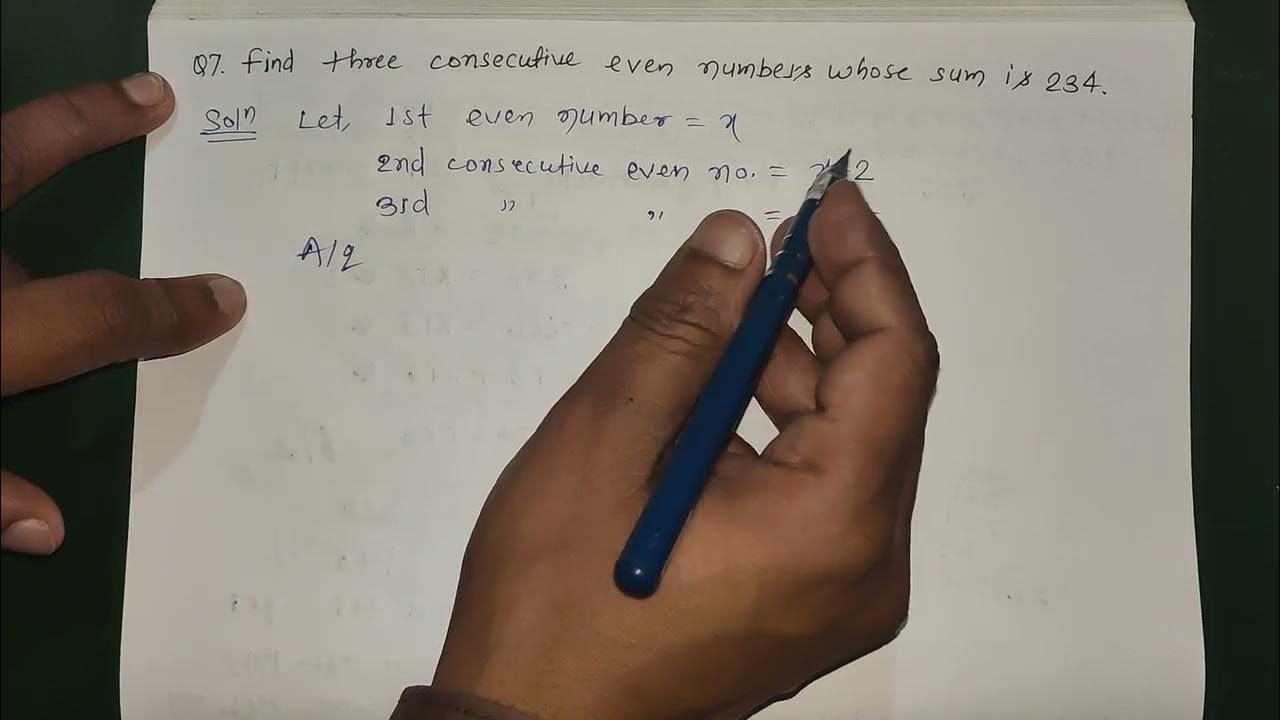 Q7. Find three consecutive even numbers whose sum is 234.
Soln Let, 1st even number = x
2nd consecutive even no. = 2
3rd " " =
A/q